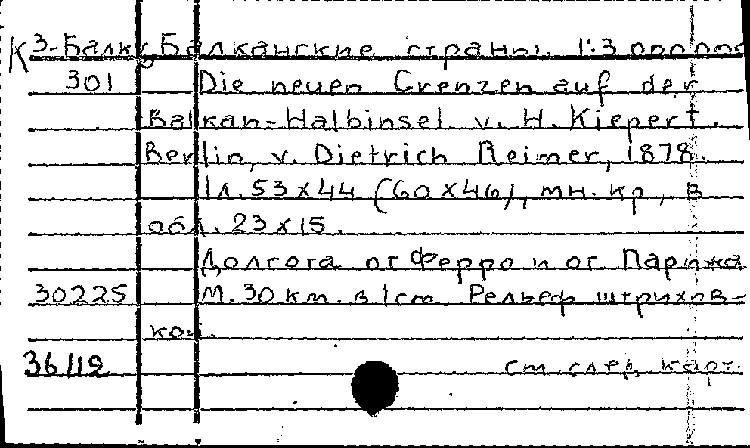 К 3-Балк Балканские страны. 1:3 000 000
301 Die neuen Grenzen auf der
Balkan-Halbinsel v. H. Kiepert.
Berlin, v. Dietrich Reimer, 1878.
1л. 53x44 (60x46), мн. кр., в
обл. 23x15.
Долгота от Ферро и от Парижа
30225 М. 30 км. в 1 см. Рельеф штрихов-
кой.
36112 см. след. карт.